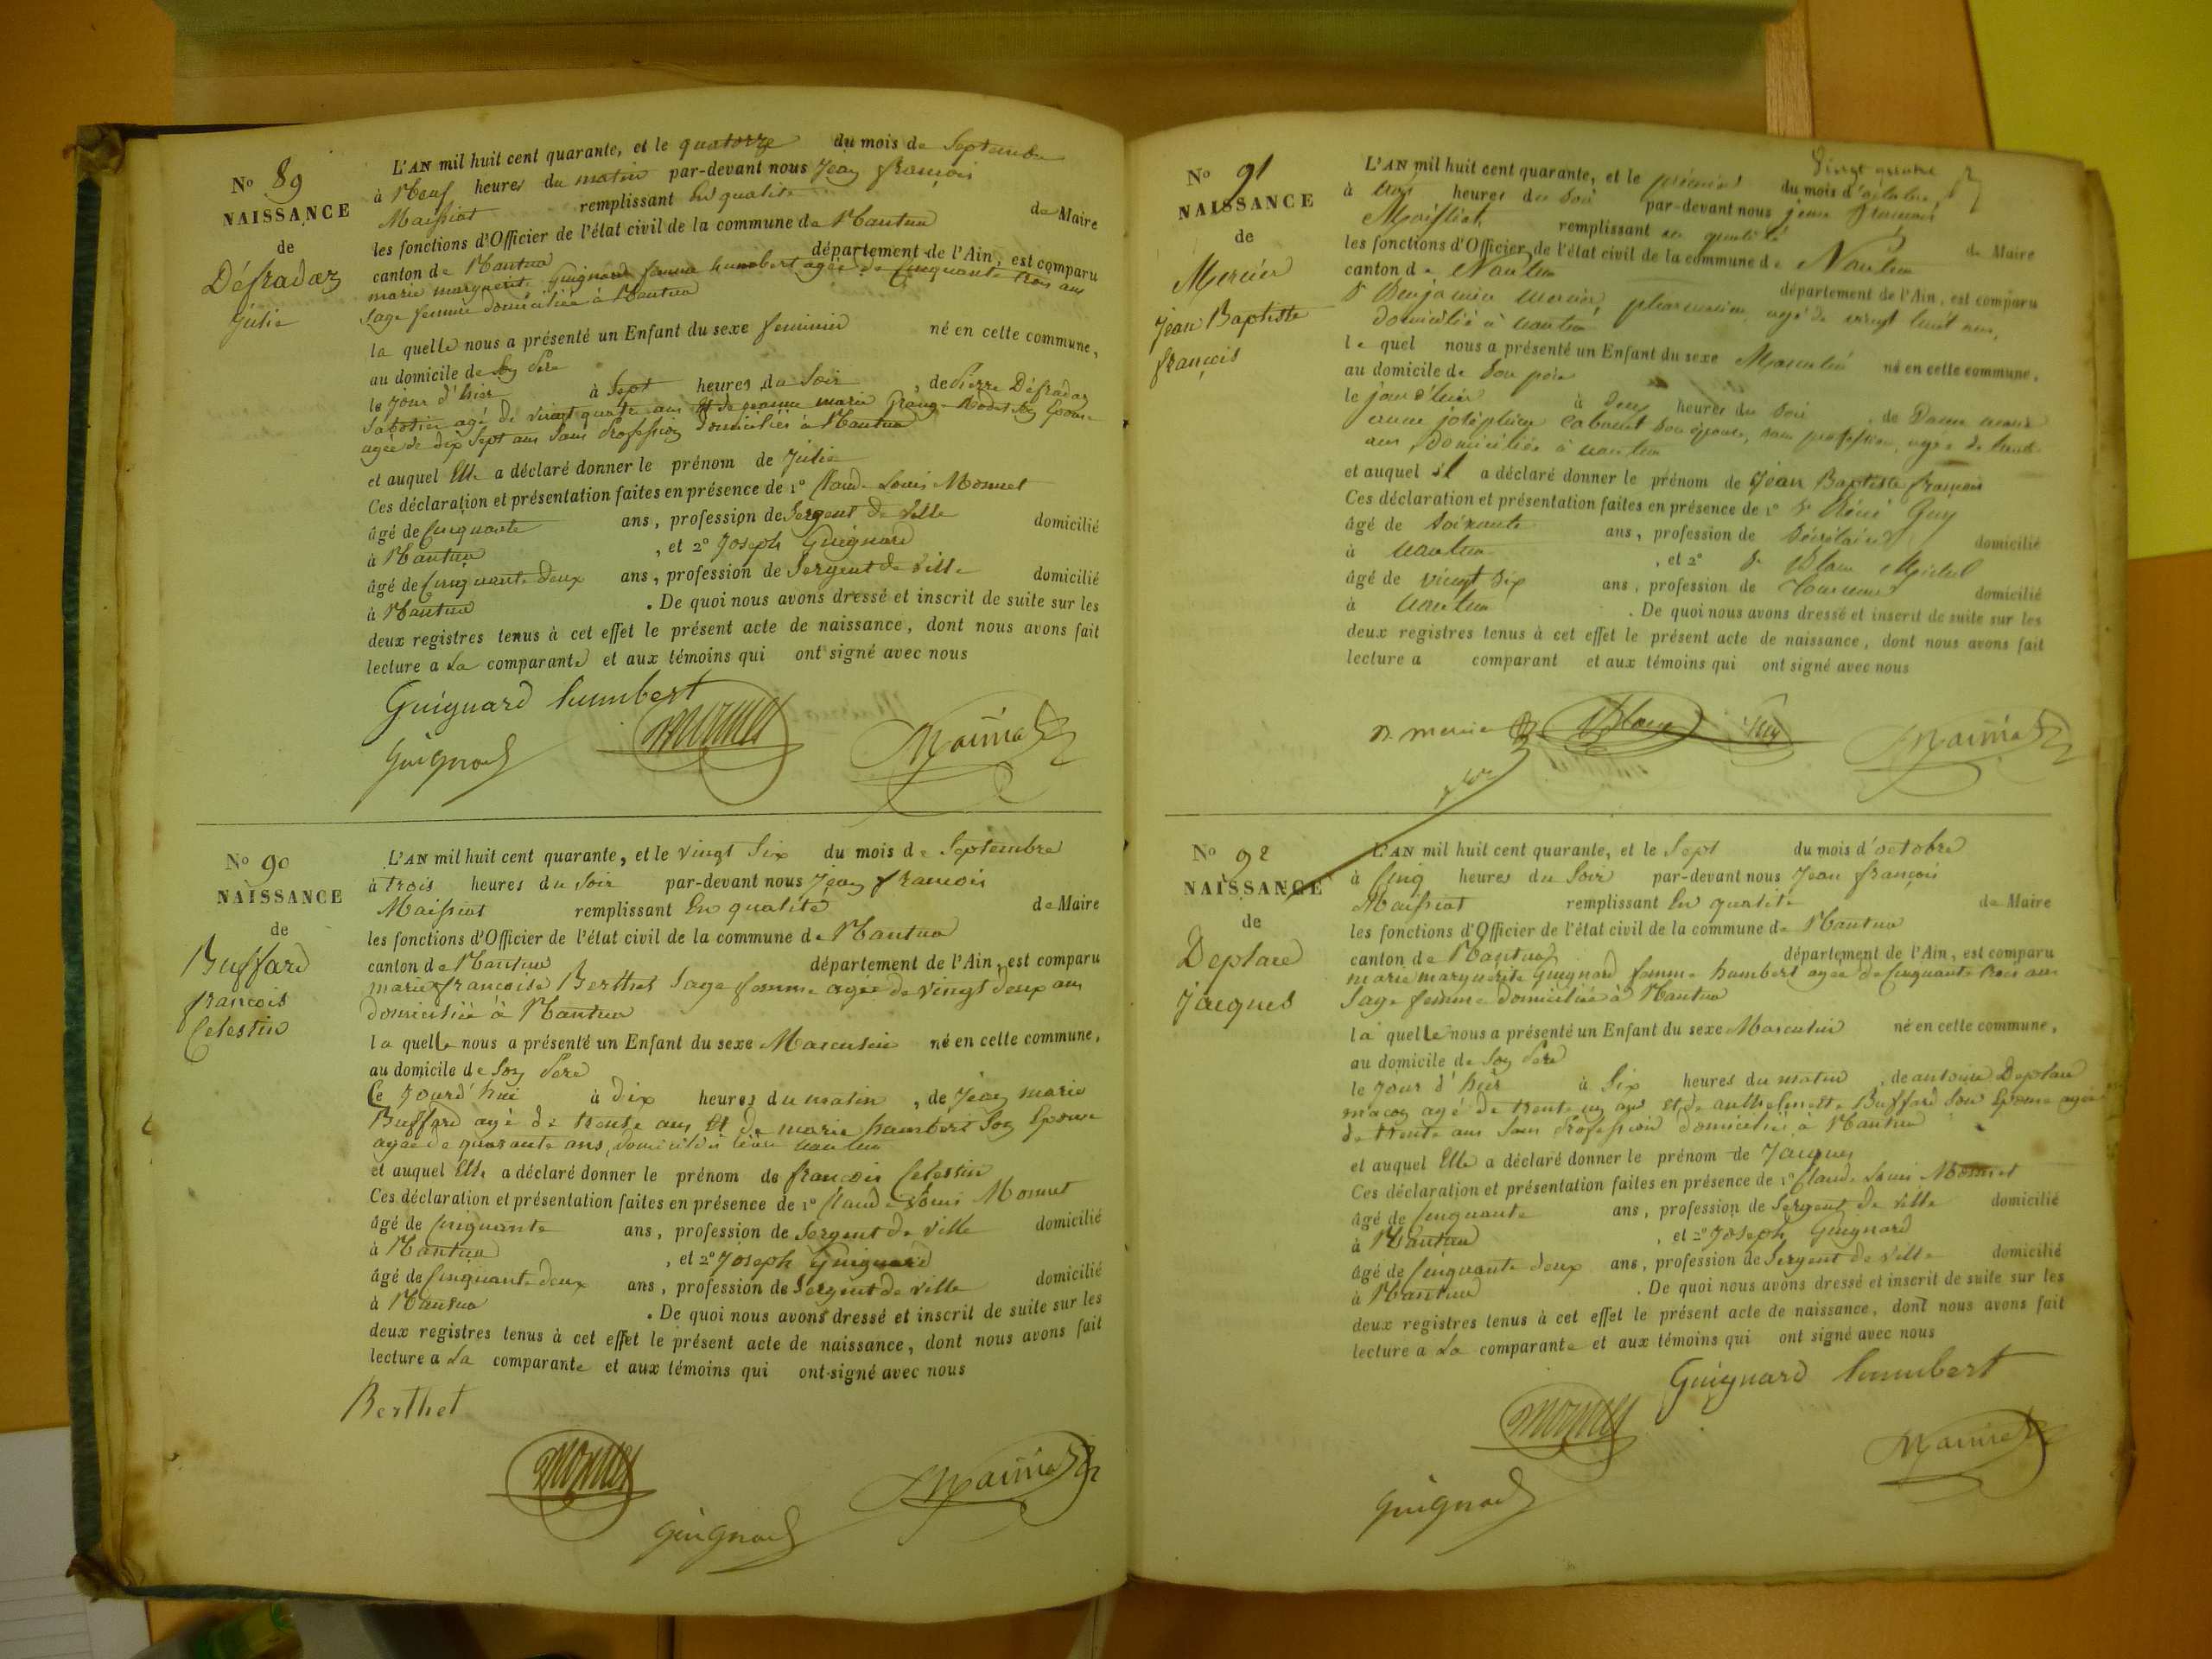 N° 89
NAISSANCE
de
Défradaz
Julie
L'AN mil huit cent quarante, et le quatorze du mois de Septembre
à Neuf heures du matin par-devant nous Jean françois
Maissiat remplissant En qualité de Maire
les fonctions d'Officier de l'état civil de la commune de Nantua
canton de Nantua département de l'Ain, est comparu
marie marguerite Guignard femme humbert agée de Cinquante trois ans
Sage femme domiciliée à Nantua
la quelle nous a présenté un Enfant du sexe feminin né en cette commune,
au domicile de Son Père
le jour d'hier à Sept heures du Soir, de Pierre Défradaz
Sabotier agé de vingt quatre ans Et de jeanne marie Son Epouse
agée de dix Sept ans Sans Profession domiciliés à Nantua
et auquel Elle a déclaré donner le prénom de Julie
Ces déclaration et présentation faites en présence de 1° Claude Louis Monnet
âgé de Cinquante ans, profession de Sergent de Ville domicilié
à Nantua, et 2° Joseph Guignard
âgé de Cinquante deux ans, profession de Sergent de Ville domicilié
à Nantua. De quoi nous avons dressé et inscrit de suite sur les
deux registres tenus à cet effet le présent acte de naissance, dont nous avons fait
lecture a La comparante et aux témoins qui ont signé avec nous
Guignard humbert
Monnet
Guignard
Maissiat
N° 90
NAISSANCE
de
Buffard
françois
Celestin
L'AN mil huit cent quarante, et le vingt Six du mois de Septembre
à trois heures du Soir par-devant nous Jean françois
Maissiat remplissant En qualité de Maire
les fonctions d'Officier de l'état civil de la commune de Nantua
canton de Nantua département de l'Ain, est comparu
marie françoise Berthet Sage femme agée de vingt deux ans
domiciliée à Nantua
la quelle nous a présenté un Enfant du sexe Masculin né en cette commune,
au domicile de Son Père
Ce Jourd'hui à dix heures du matin, de Jean marie
Buffard agé de trente ans Et de marie humbert Son Epouse
agée de quarante ans, domiciliés Nantua
et auquel Elle a déclaré donner le prénom de françois Celestin
Ces déclaration et présentation faites en présence de 1° Claude Louis Monnet
âgé de Cinquante ans, profession de Sergent de Ville domicilié
à Nantua, et 2° Joseph Guignard
âgé de Cinquante deux ans, profession de Sergent de Ville domicilié
à Nantua. De quoi nous avons dressé et inscrit de suite sur les
deux registres tenus à cet effet le présent acte de naissance, dont nous avons fait
lecture a La comparante et aux témoins qui ont signé avec nous
Berthet
Monnet
Guignard
Maissiat
N° 91
NAISSANCE
de
Mercier
Jean Baptiste
françois
vingt quatre
L'AN mil huit cent quarante, et le premier du mois d'octobre,
à heures du Soir par-devant nous jean françois
Maissiat, remplissant en qualité de Maire
les fonctions d'Officier de l'état civil de la commune de Nantua
canton de Nantua département de l'Ain, est comparu
Sr Benjamin Mercier, pharmacien, agé de vingt huit ans,
domicilié à nantua
le quel nous a présenté un Enfant du sexe Masculin né en cette commune,
au domicile de Son père
le jour d'hier à Deux heures du Soir, de Dame
anne joséphine Cabouat Son épouse, sans profession, agée de
ans, domiciliée à nantua
et auquel il a déclaré donner le prénom de Jean Baptiste françois
Ces déclaration et présentation faites en présence de 1° Sr Réné Guy
âgé de Soixante ans, profession de Secrétaire domicilié
à Nantua, et 2° Sr Blanc Michel
âgé de vingt Six ans, profession de domicilié
à Nantua. De quoi nous avons dressé et inscrit de suite sur les
deux registres tenus à cet effet le présent acte de naissance, dont nous avons fait
lecture a comparant et aux témoins qui ont signé avec nous
B. mercier Blanc Guy Maissiat
N° 92
NAISSANCE
de
Deplace
Jacques
L'AN mil huit cent quarante, et le Sept du mois d'octobre
à Cinq heures du Soir par-devant nous Jean françois
Maissiat remplissant En qualité de Maire
les fonctions d'Officier de l'état civil de la commune de Nantua
canton de Nantua département de l'Ain, est comparu
marie marguerite Guignard femme humbert agée de Cinquante trois ans
Sage femme domiciliée à Nantua
la quelle nous a présenté un Enfant du sexe Masculin né en cette commune,
au domicile de Son Père
le Jour d'hier à Six heures du matin, de antoine Deplace
maçon agé de trente un ans Et de anthelmette Buffard Son Epouse agée
de trente ans Sans Profession domiciliés à Nantua
et auquel Elle a déclaré donner le prénom de Jacques
Ces déclaration et présentation faites en présence de 1° Claude Louis Monnet
âgé de Cinquante ans, profession de Sergent de Ville domicilié
à Nantua, et 2° Joseph Guignard
âgé de Cinquante deux ans, profession de Sergent de Ville domicilié
à Nantua. De quoi nous avons dressé et inscrit de suite sur les
deux registres tenus à cet effet le présent acte de naissance, dont nous avons fait
lecture a La comparante et aux témoins qui ont signé avec nous
Guignard humbert
Monnet
Maissiat
Guignard